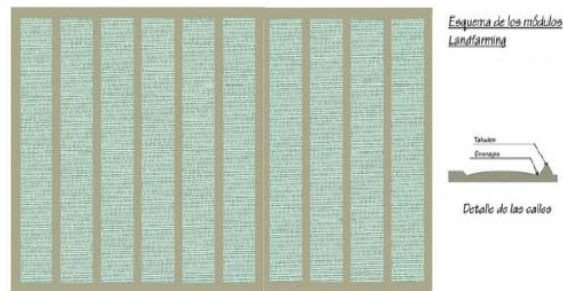 Esquema de los módulos
Landfarming
Taludes
Drenajes
Detalle de las calles